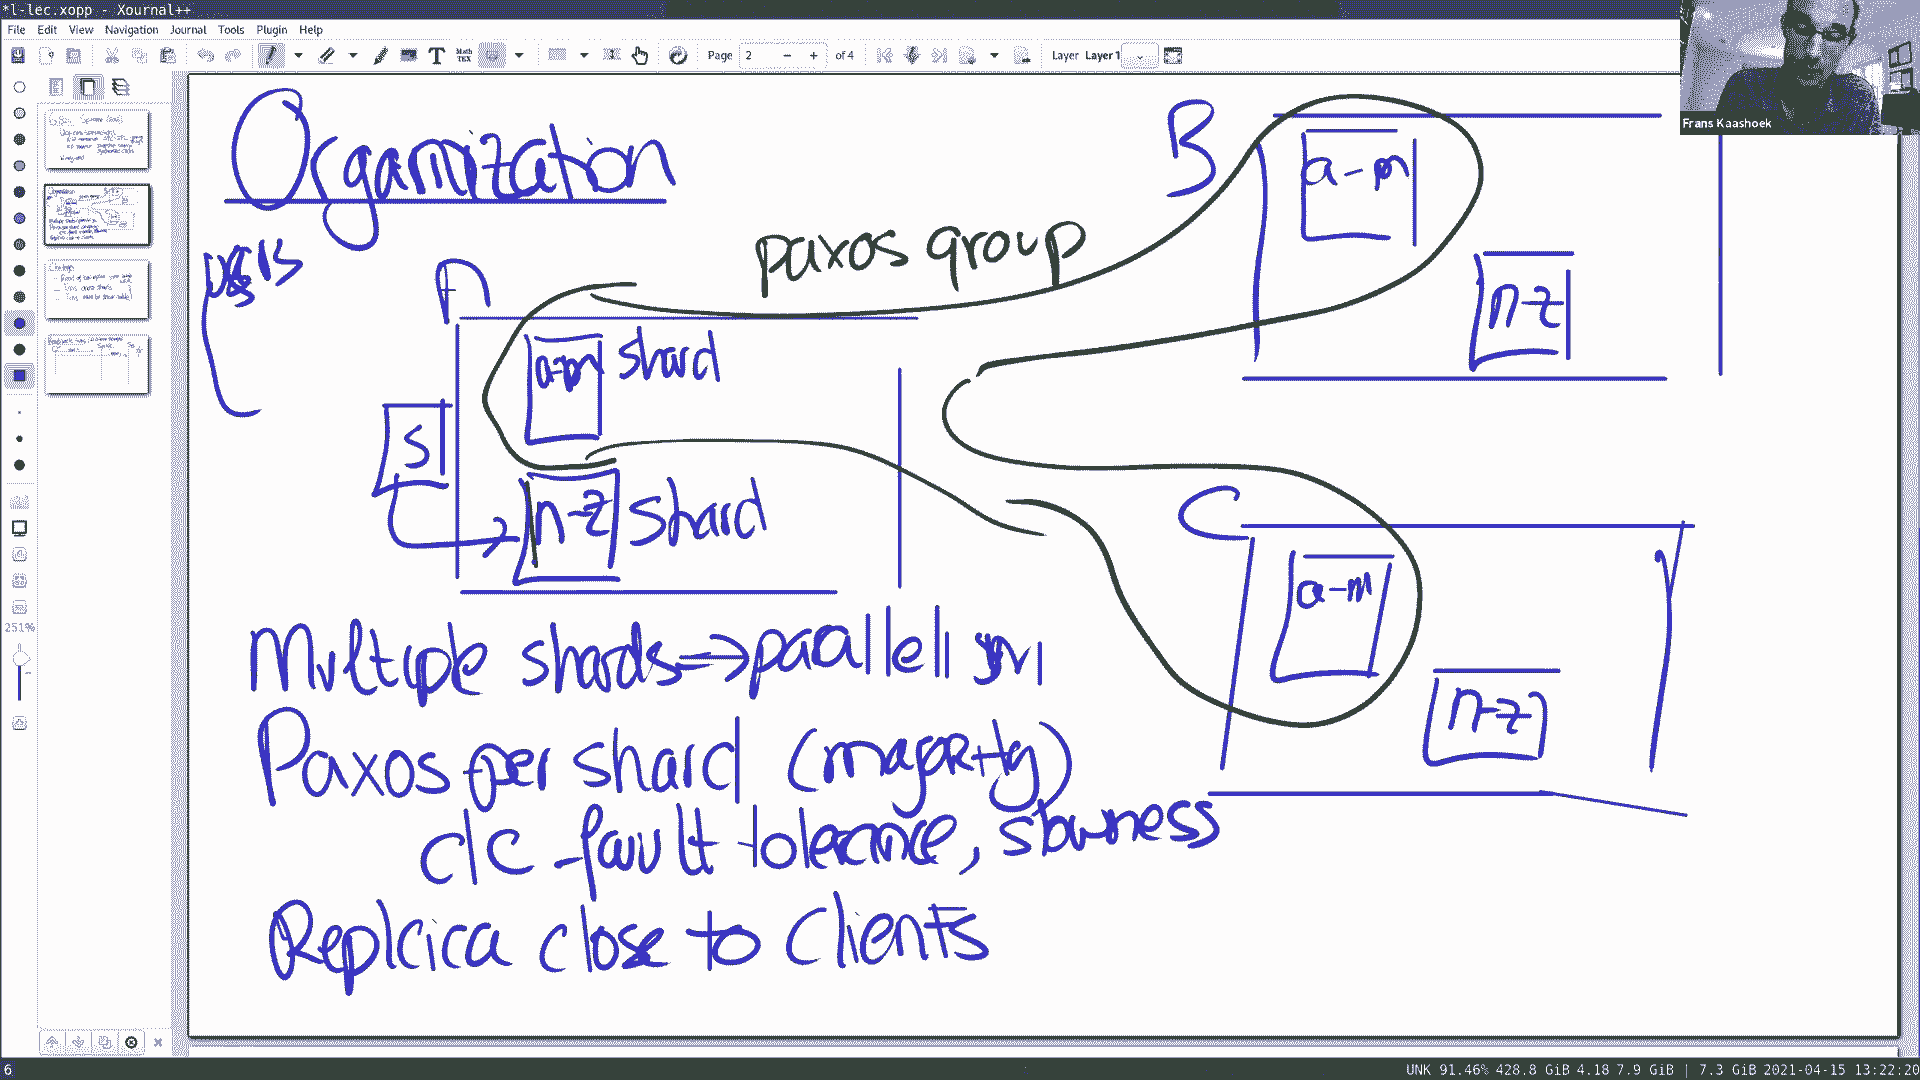 *l-lec.xopp - Xournal++
File Edit View Navigation Journal Tools Plugin Help
Page 2 of 4 Layer Layer 1
Frans Kaashoek
Organization
users
paxos group
A
a-m shard
n-z shard
S
B
a-m
n-z
C
a-m
n-z
Multiple shards → parallelism
Paxos per shard (majority)
d/c fault tolerance, slowness
Replcica close to clients
251%
6
UNK 91.46% 428.8 GiB 4.18 7.9 GiB | 7.3 GiB 2021-04-15 13:22:20